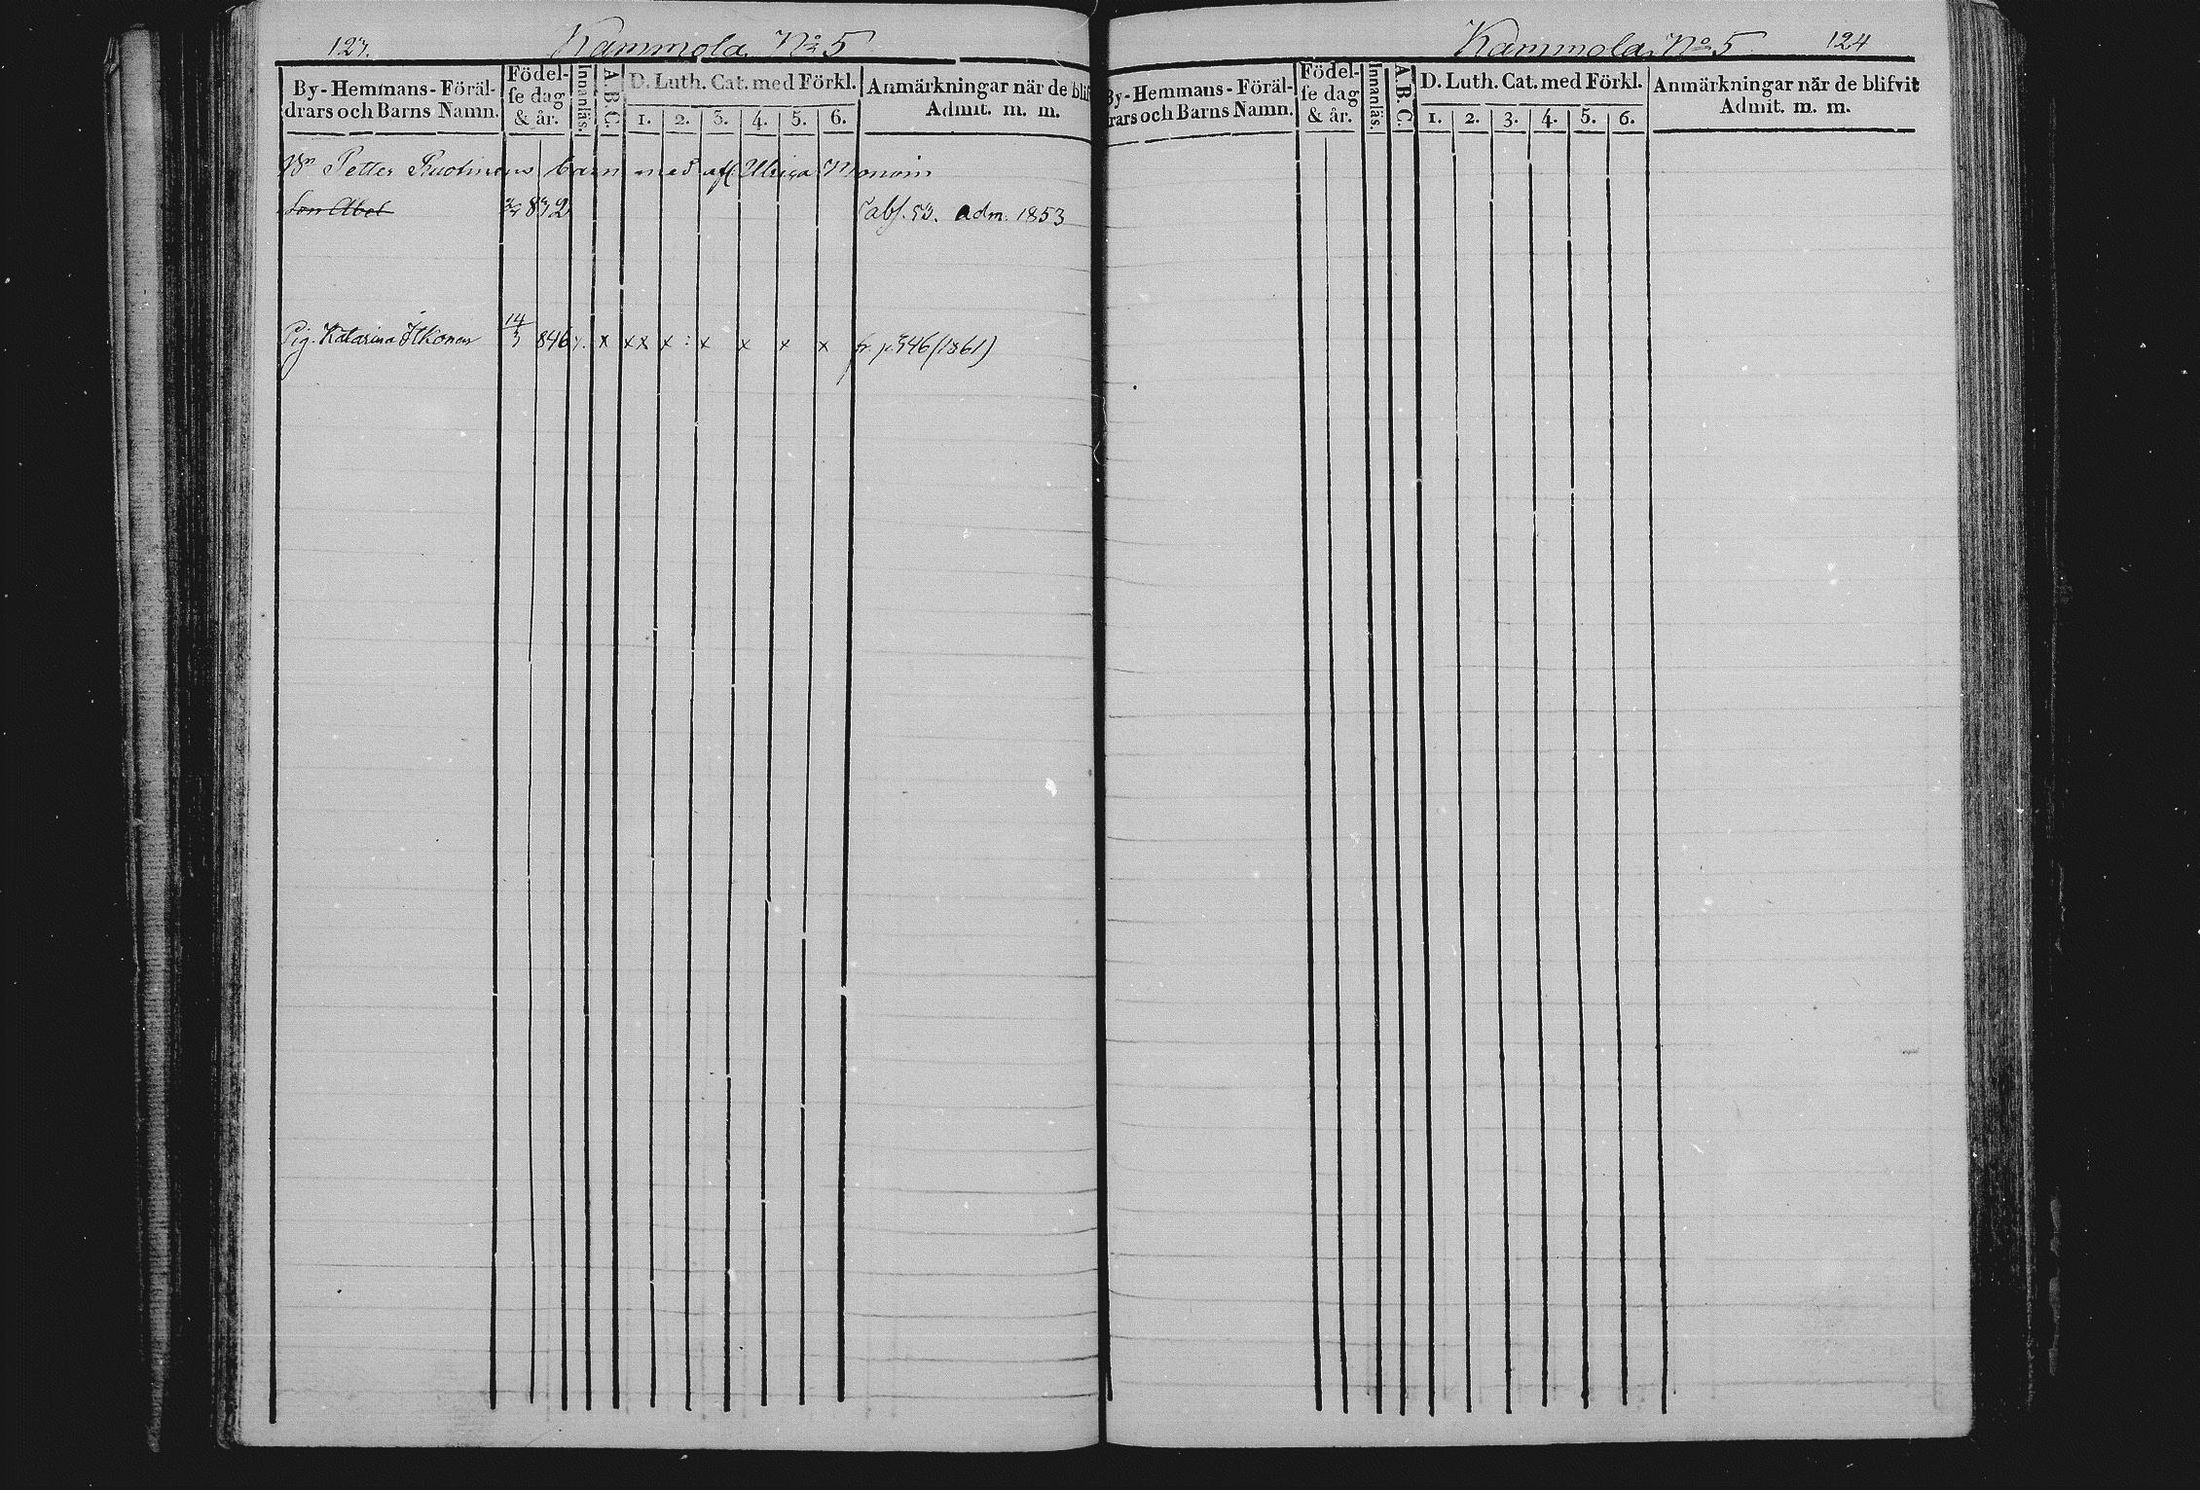 123.
Kammola No 5
By-Hemmans-Föräl-
drars och Barns Namn.
Födel-
se dag
& år.
Innanläs.
A.B.C.
D. Luth. Cat. med Förkl.
1. 2. 3. 4. 5. 6.
Anmärkningar när de blif
Admit. m. m.
Petter barn med afl.
Son Abel 832 abs. 53. adm. 1853
Pig. Katarina Ikonen 14/3 846 x xx x : x x x x fr. p. 946 (1861)
Kammola No 5
124
By-Hemmans-Föräl-
rars och Barns Namn.
Födel-
se dag
& år.
Innanläs.
A.B.C.
D. Luth. Cat. med Förkl.
1. 2. 3. 4. 5. 6.
Anmärkningar när de blifvit
Admit. m. m.